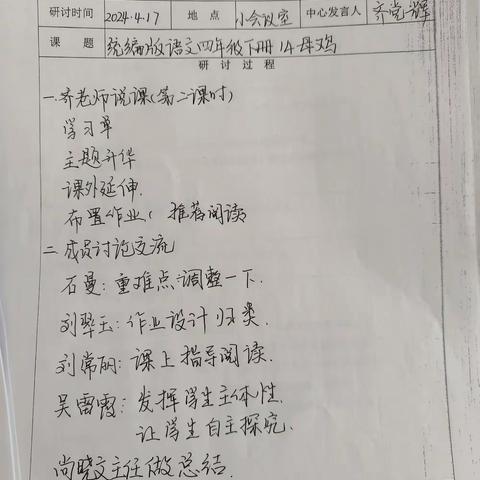 研讨时间 2024.4.17 地点 小会议室 中心发言人 齐党辉
课题 统编版语文四年级下册14母鸡
研讨过程
一.齐老师说课(第二课时)
学习单
主题升华
课外延伸.
布置作业( 推荐阅读
二.成员讨论交流
石曼:重难点调整一下.
刘翠玉:作业设计归类.
刘常丽:课上指导阅读.
吴雷霞:发挥学生主体性.
让学生自主探究.
尚晓文主任做总结.